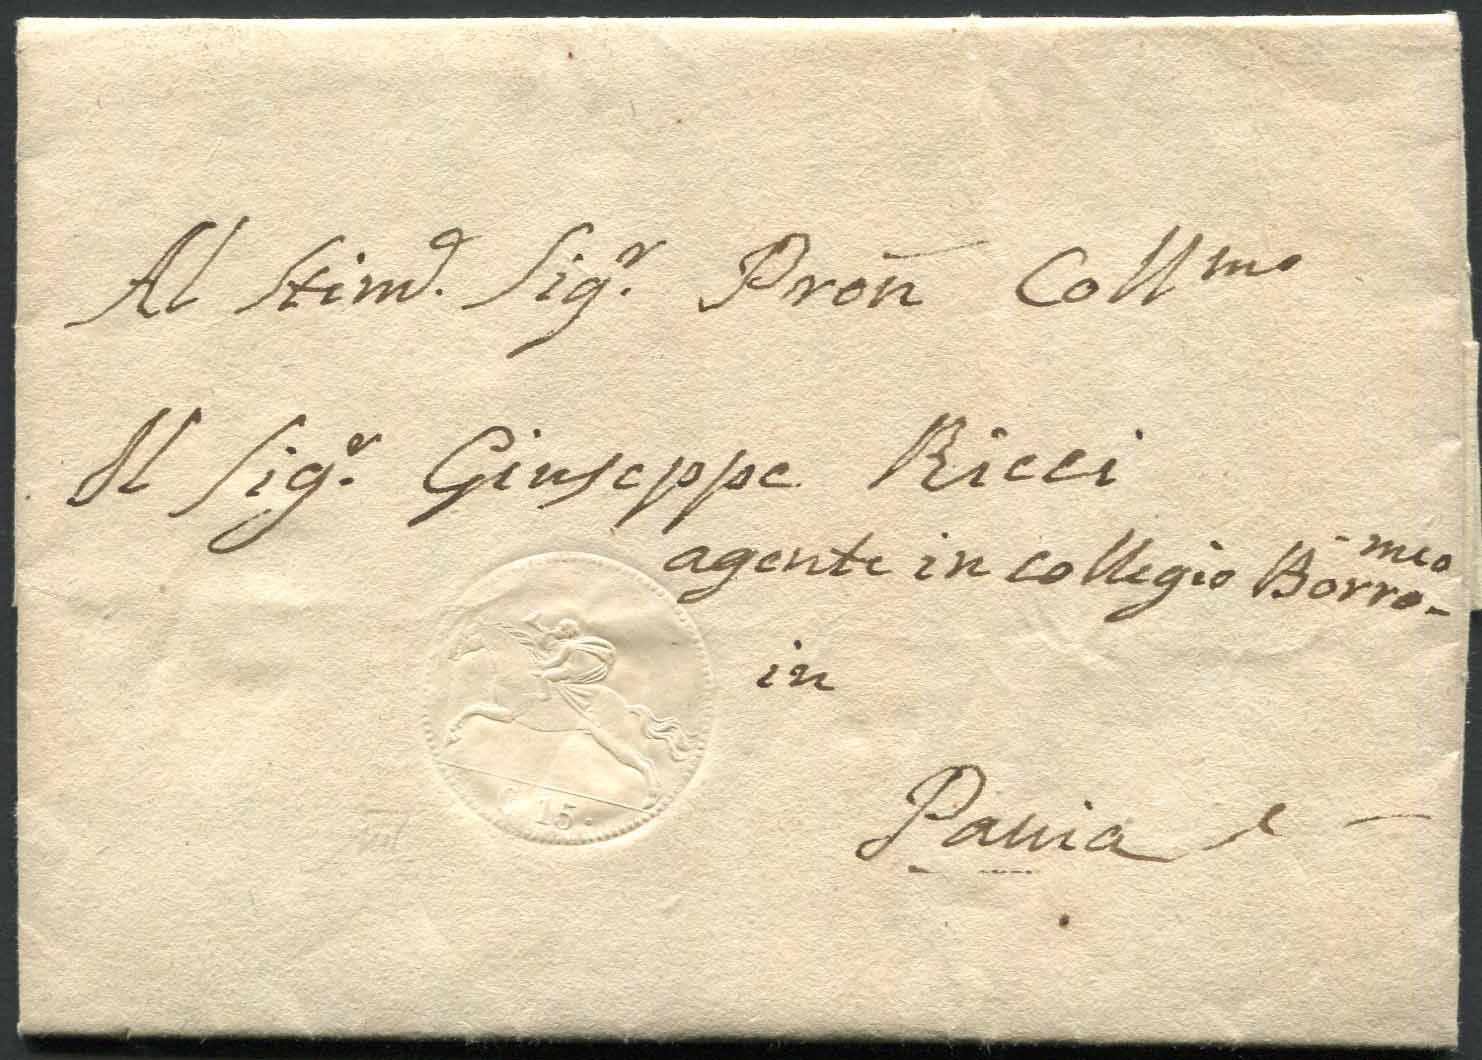 Al Stimd. Sigr. Pron̄ Collmo
Il Sigr. Giuseppe Ricci
agente in collegio Borro-
-meo
in
Pavia
C. 15.